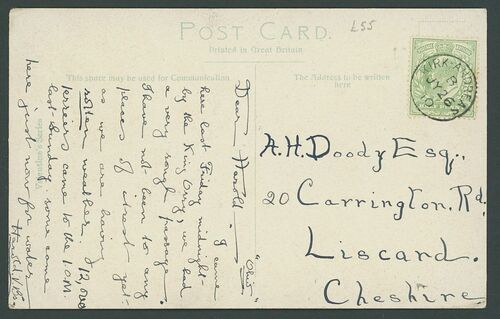 £55
POST CARD.
Printed in Great Britain.
This space may be used for Communication
The Address to be written
here
KIRK-ANDREAS
B
JY 26
"Ohio"
Dear Harold — I came
here last Friday midnight -
by the King Orry; we had
a very rough passage.
I have not been to any
places of interest yet -
as we are having
rotten weather. 12,000
terriers came to the I.O.M.
last Sunday: some come
here just now for water
Harold
A.H. Doody Esq.,
20 Carrington, Rd.
Liscard.
Cheshire